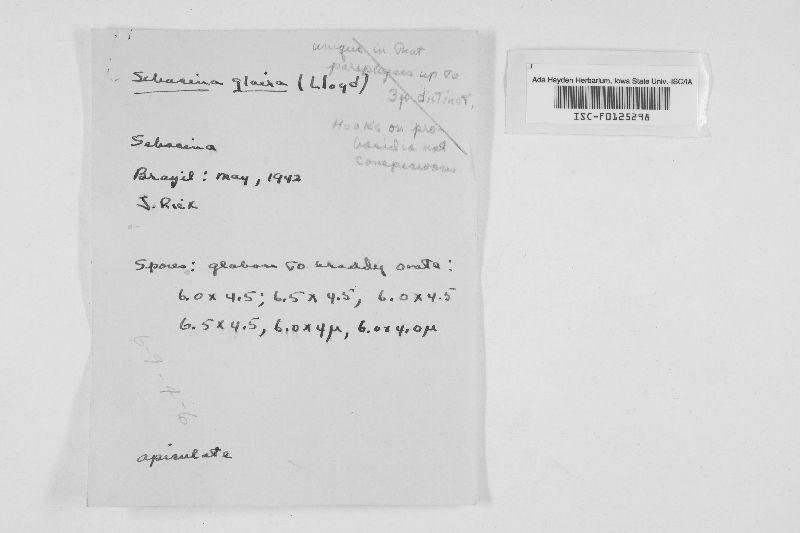 unique in that
paraphyses up to
3μ distinct,
Hooks on pro-
basidia not
conspicuous
Sebacina glaira (Lloyd)
Sebacina
Brazil: may, 1942
J. Rick
Spores: globose to broadly ovate:
6.0 x 4.5; 6.5 x 4.5, 6.0 x 4.5
6.5 x 4.5, 6.0 x 4μ, 6.0 x 4.0μ
apiculate
Ada Hayden Herbarium, Iowa State Univ.-ISC/IA
ISC-F0125298